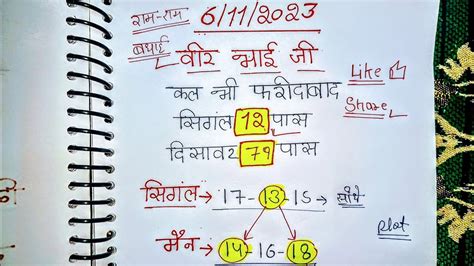 राम-राम 6/11/2023
बधाई वीर भाई जी
कल भी फरीदाबाद Like
सिगंल 12 पास Share
दिसावर 79 पास
सिगंल → 17-13-15 →
मैन → 14-16-18